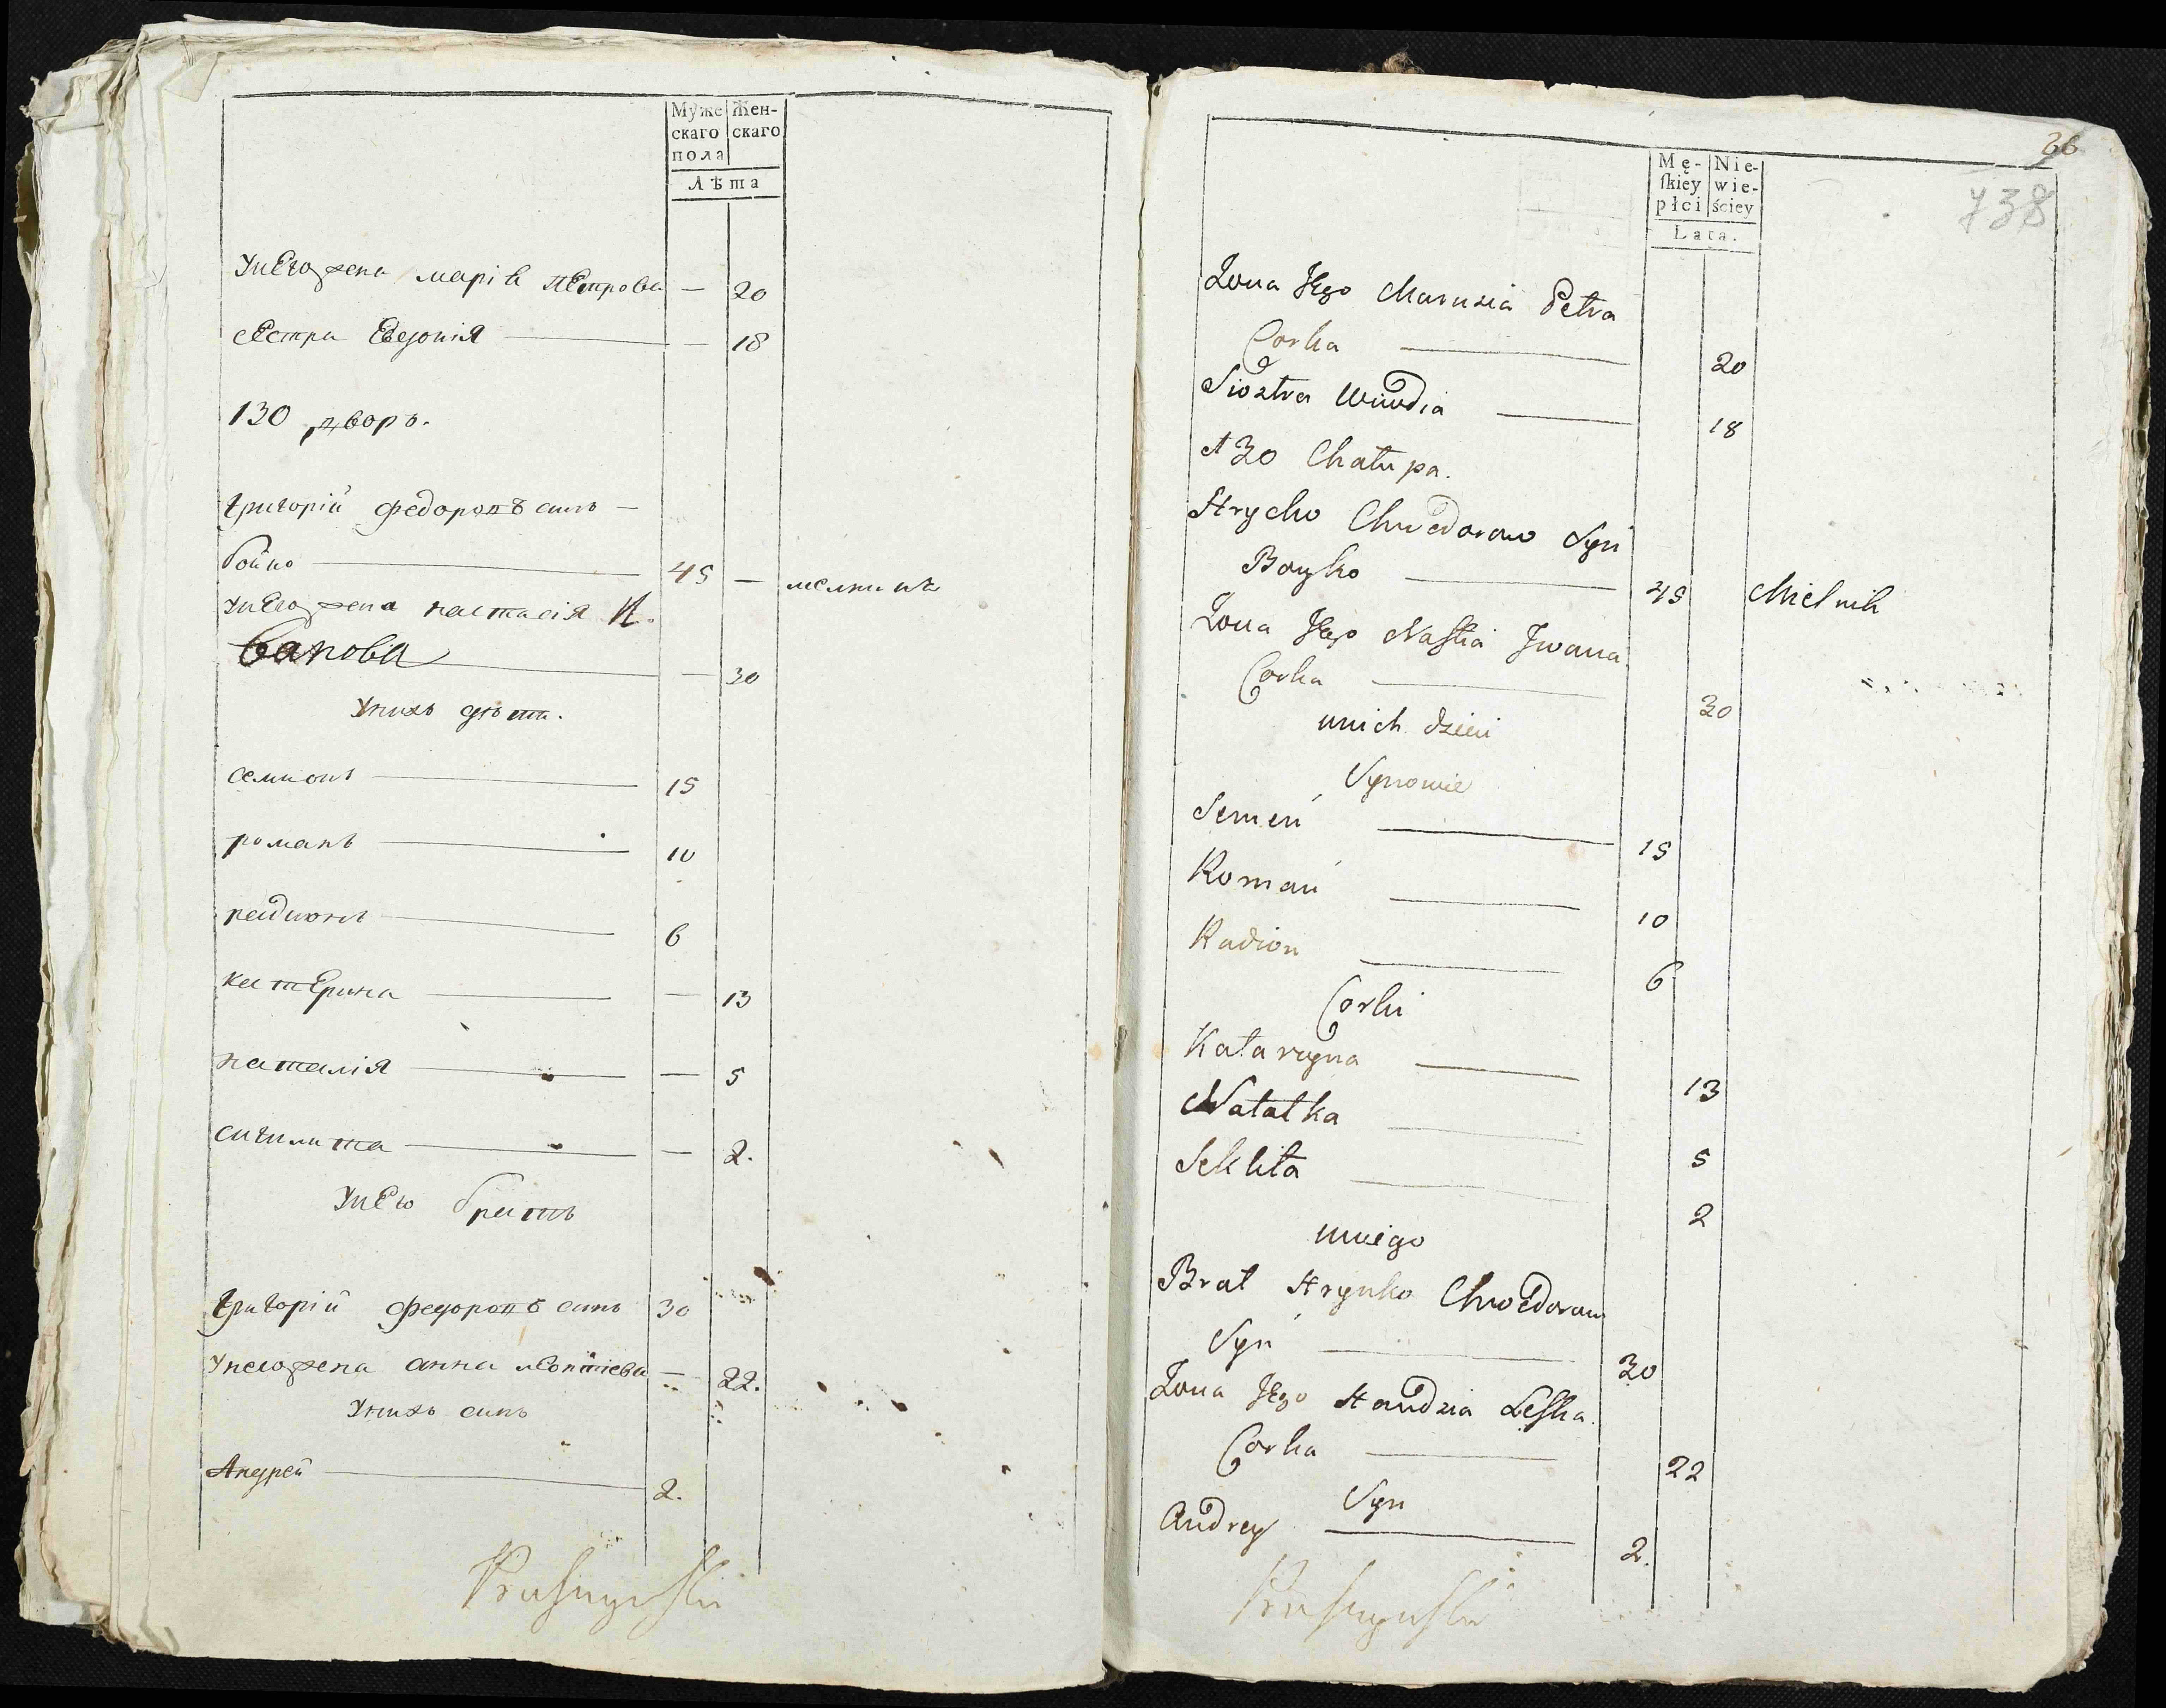 Муже
скаго
пола
Жен-
скаго
Лѣта
Унего жена марія петрова — 20
сестра Евдокія — 18
130 дворъ.
григорій федоровъ синъ —
бойко 45 — мелникъ
Унего жена настасія и
ванова — 30
Унихъ дѣти.
семионъ 15
романъ 10
радионъ 6
катерина — 13
наталія — 5
сиглита — 2.
Унего братъ
григорій федоровъ синъ 30
Унего жена анна леонтіева — 22.
Унихъ синъ
Андрей 2.
66
738
Mę-
skiey
płci
Nie-
wie-
ściey
Lata.
Zona Jego Marusia Petra
Corka 20
Siostra Wiwdia 18
130 Chałupa.
Hrycko Chwedorow Syn
Boyko 45 Mielnik
Zona Jego Nastia Jwana
Corka 30
unich dzieci
Synowie
Semen 15
Roman 10
Radion 6
Corki
Kataryna 13
Natalka 5
Seklita 2
uniego
Brat Hrynko Chwedorow
Syn 30
Zona Jego Handzia Leska
Corka 22
Syn
Andrey 2.